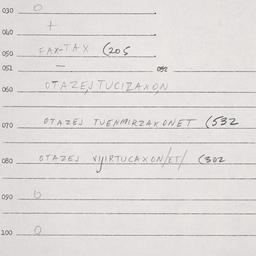 030 0
040 +
050 FAX-TAX (205
051 — 052
060 OTAZEJTUCIZAXON
070 OTAZEJ TUENMIRZAXONET (532
080 OTAZEJ VIJIRTUCAXON/ET/ (302
090 0
100 0